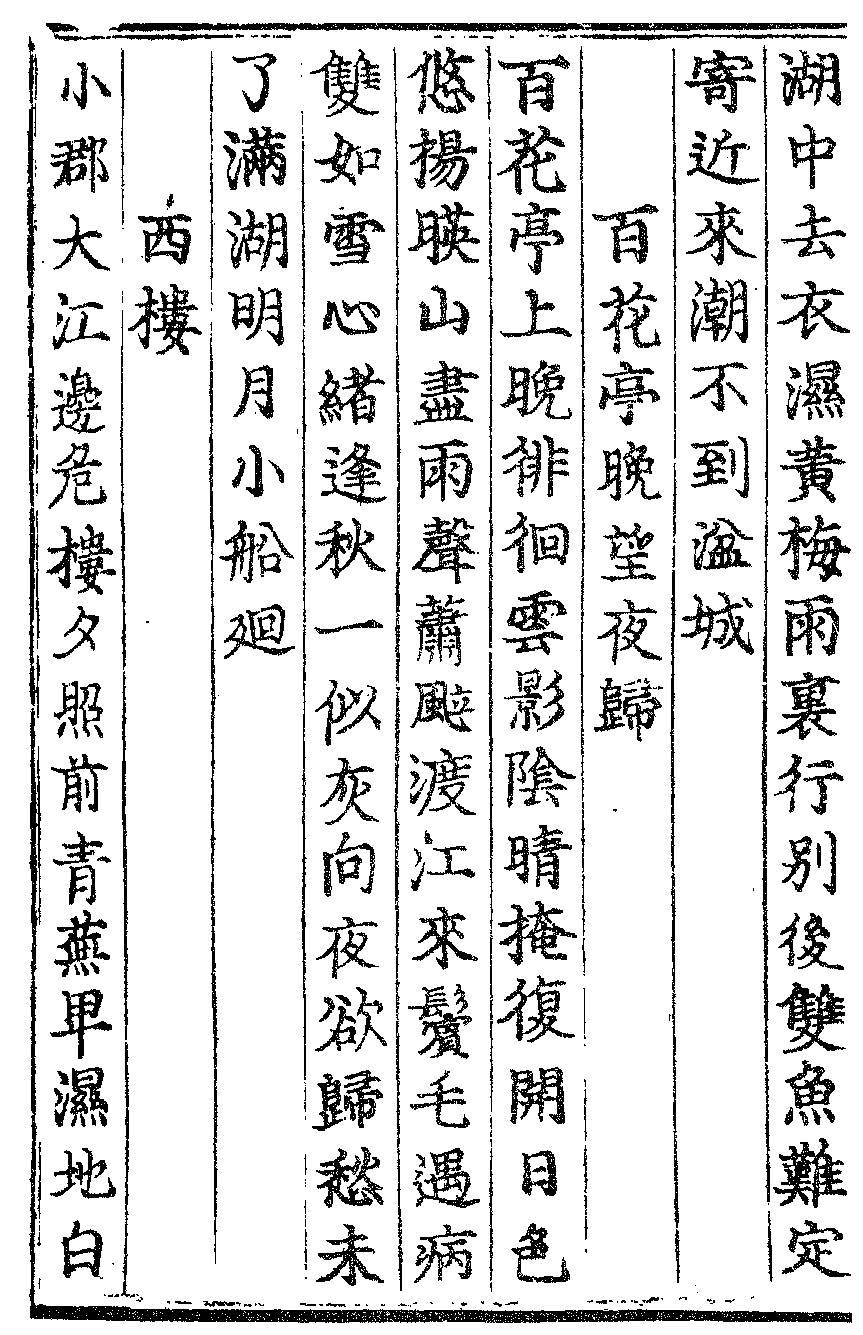 湖中去衣濕黃梅雨裏行別後雙魚難定
寄近來潮不到湓城
百花亭晚望夜歸
百花亭上晚徘徊雲影陰晴掩復開日色
悠揚暎山盡雨聲蕭颭渡江來鬢毛遇病
雙如雪心緒逢秋一似灰向夜欲歸愁未
了滿湖明月小船廻
西樓
小郡大江邊危樓夕照前青蕪卑濕地白